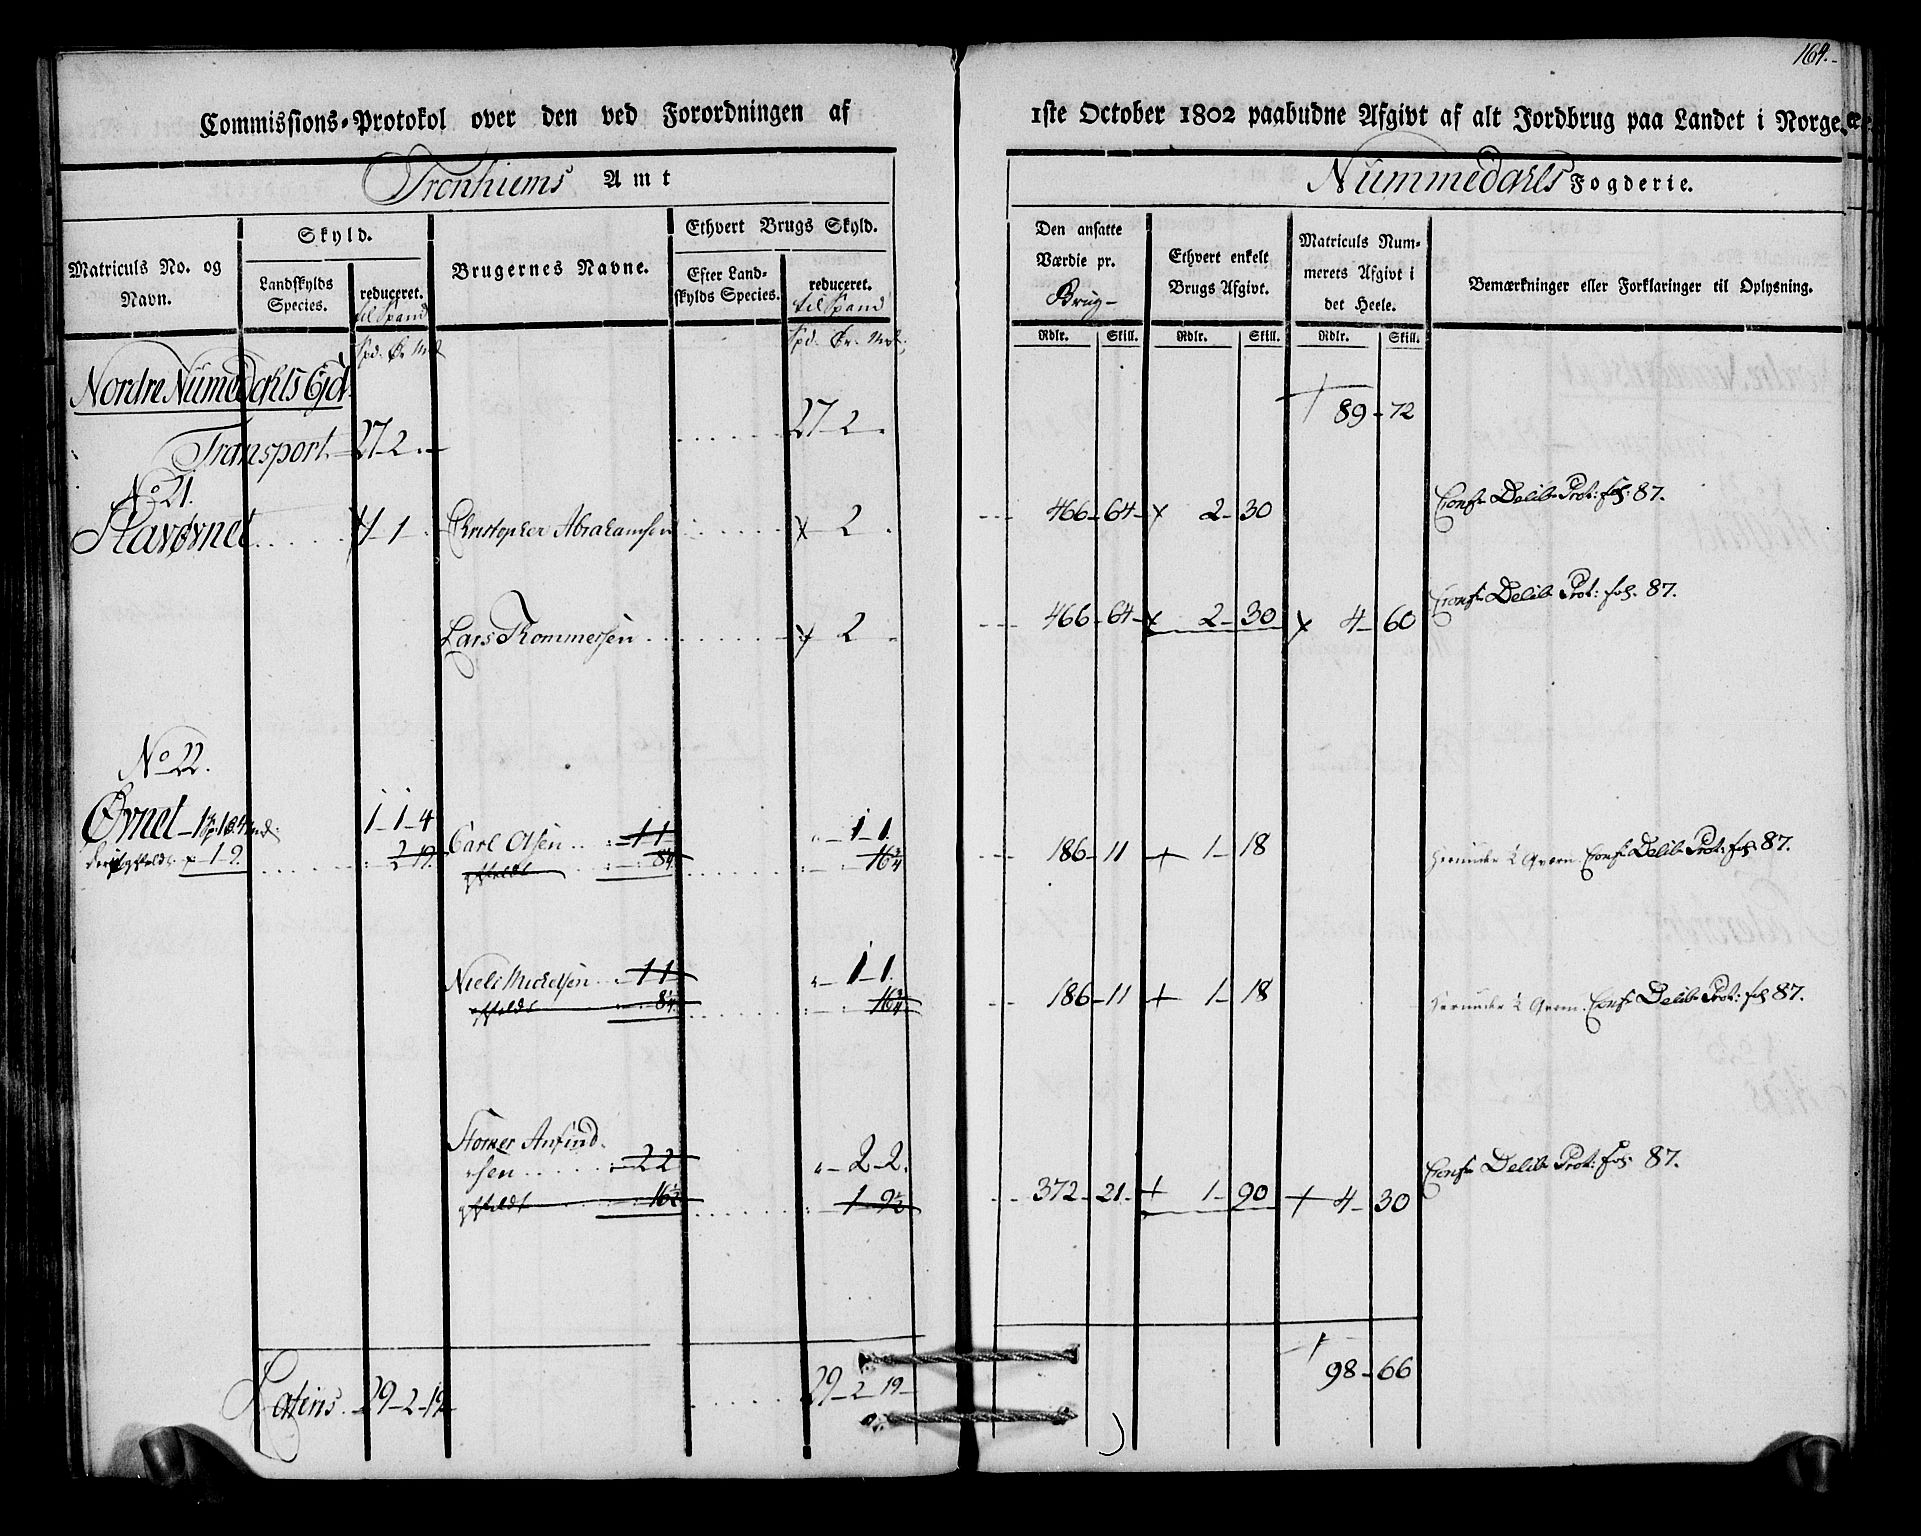 164.
Commissions-Protokol over den ved Forordningen af 1ste October 1802 paabudne Afgivt af alt Jordbrug paa Landet i Norge, &c.
Tronhiems Amt
Nummedahls Fogderie.
Matriculs No. og Navn.
Skyld.
Landskylds Species.
reduceret. til Spand
Brugernes Navne.
Ethvert Brugs Skyld.
Efter Landskylds Species.
reduceret. til Spand
Den ansatte Værdie pr. Brug-
Ethvert enkelt Brugs Afgivt.
Matriculs Nummerets Afgivt i det Heele.
Bemærkninger eller Forklaringer til Oplysning.
Rdlr. Skill. Rdlr. Skill. Rdlr. Skill.
Nordre Numedahls Gjd.
89-72
Transport 27-2.- 27-2.
No 21.
Stavøvnet 1-1. Christopher Abrahamsen 2. 466-64- 2-30 Conf. Delib. Prot: fol: 87.
Lars Thommesen 2. 466-64- 2-30 4-60 Conf. Delib. Prot: fol. 87.
No 22.
Øvnet 1-1-4
2-19.
Carl Olsen 1-1 1-1. 186-11 1-18 herunder ½ Qvern. Conf. Delib. Prot: fol 87.
16¾
Niels Mickelsen 1-1 1-1. 186-11 1-18 herunder ½ Qvern. Conf. Delib. Prot: fol 87.
16¾
Thomer Anfind-
sen 2-2 2-2.
16½ 1-9½ 372-21- 1-90 4-30 Conf. Delib. Prot: fol 87.
Lateris 29-2-19 29-2-19- 98-66